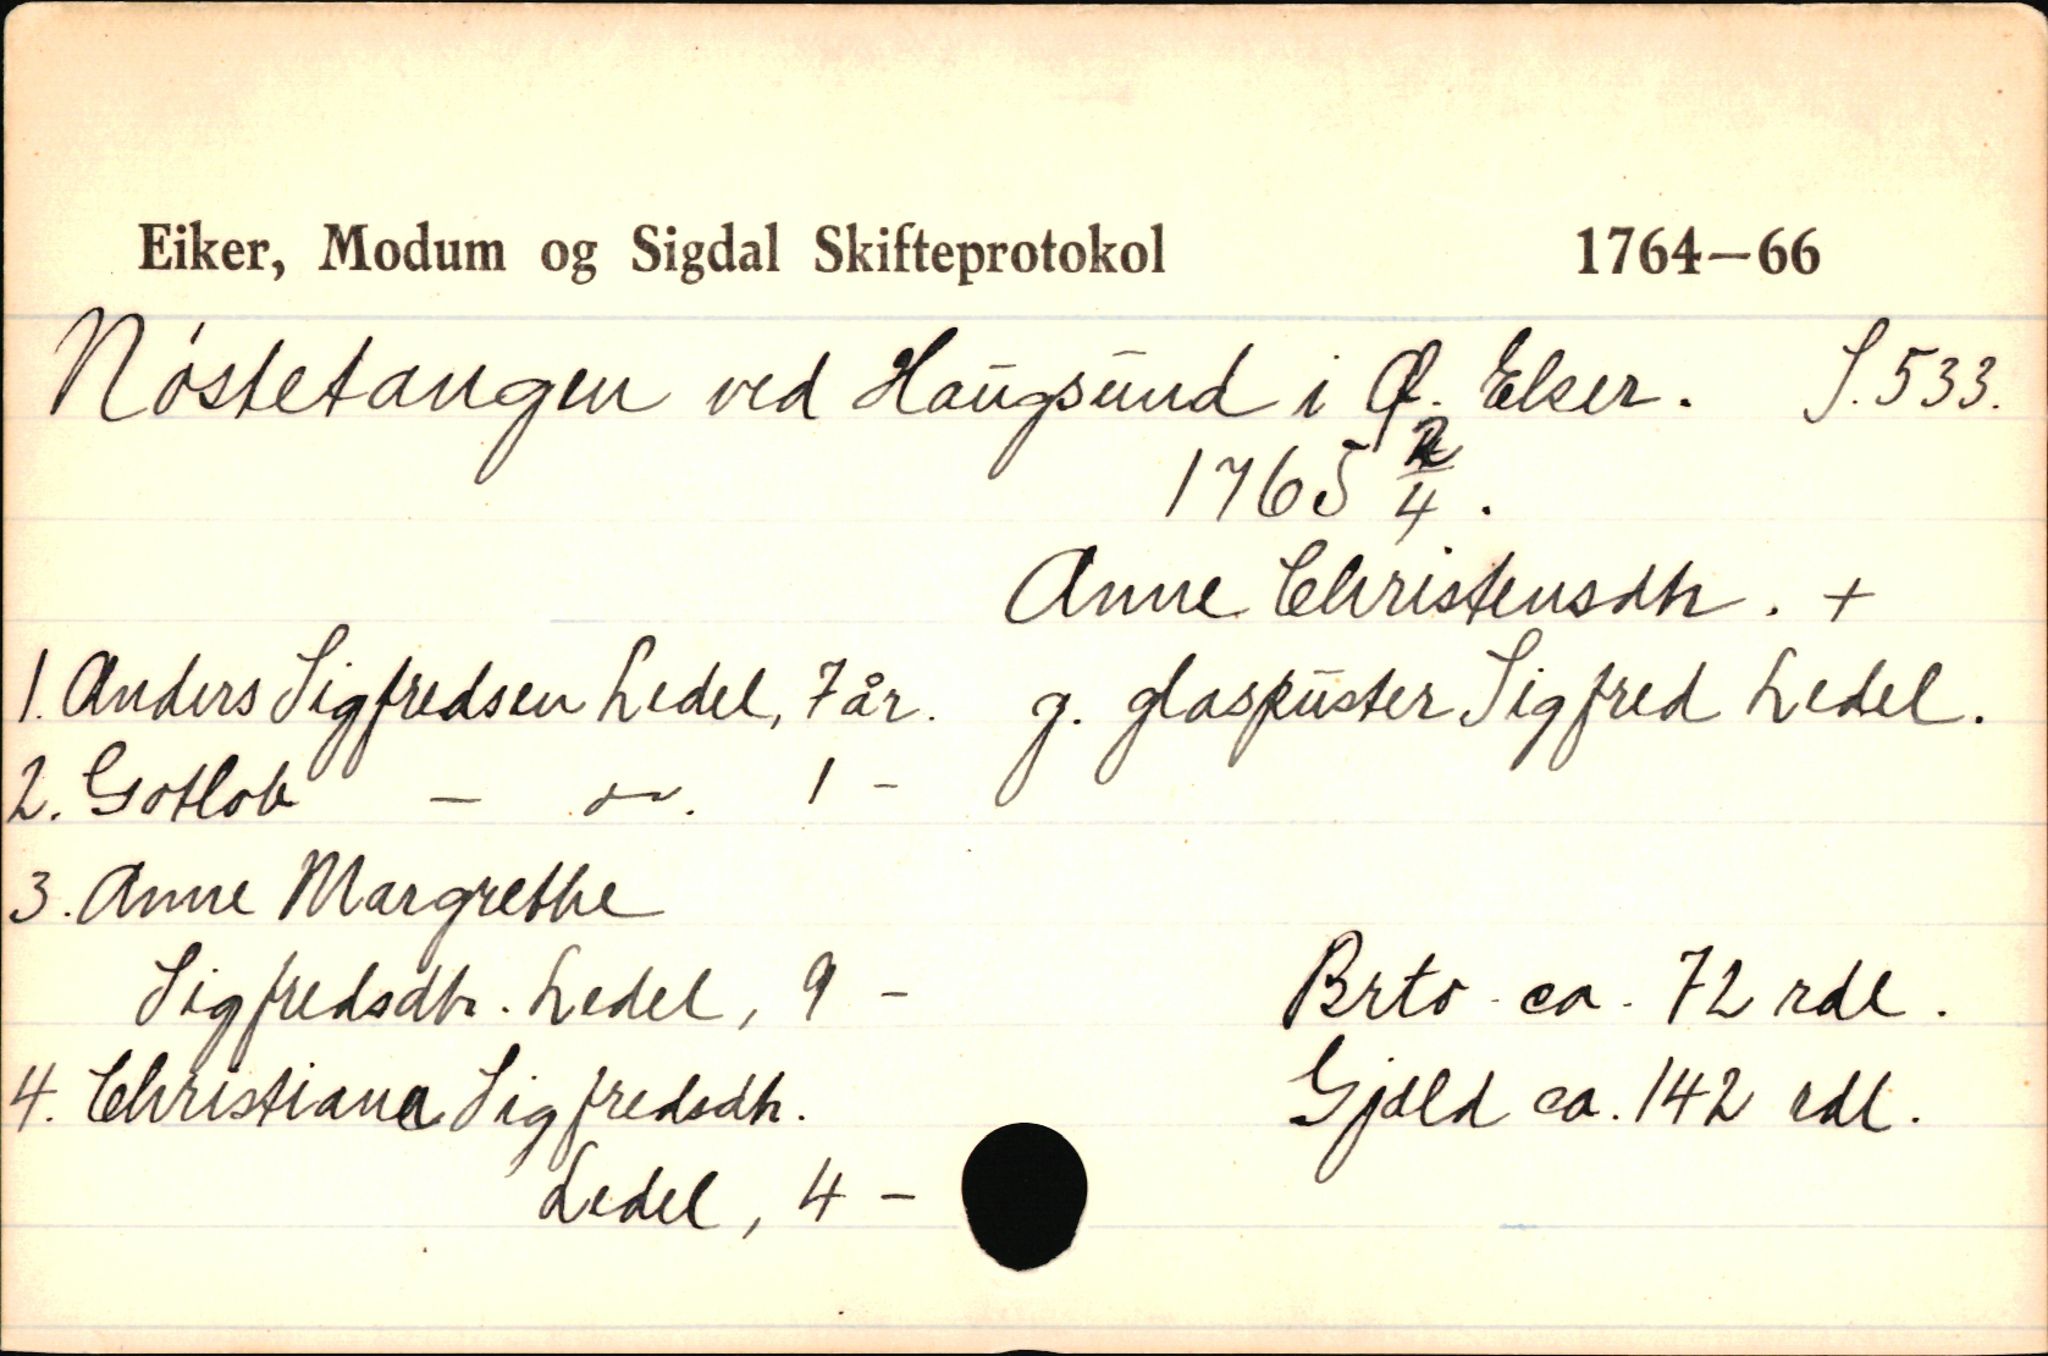 Eiker, Modum og Sigdal Skifteprotokol 1764—66
Nøstetangen ved Haugsund i Ø. Eker. S. 533.
1765 2/4.
Anne Christensdtr. +
1. Anders Sigfredsen Ledel, 7 år. g. glaspuster Sigfred Ledel.
2. Gotlob — do. 1 -
3. Anne Margrethe
Sigfredsdtr. Ledel, 9 - Brto ca. 72 rdl.
4. Christiane Sigfredsdtr. Gjæld ca. 142 rdl.
Ledel, 4 -